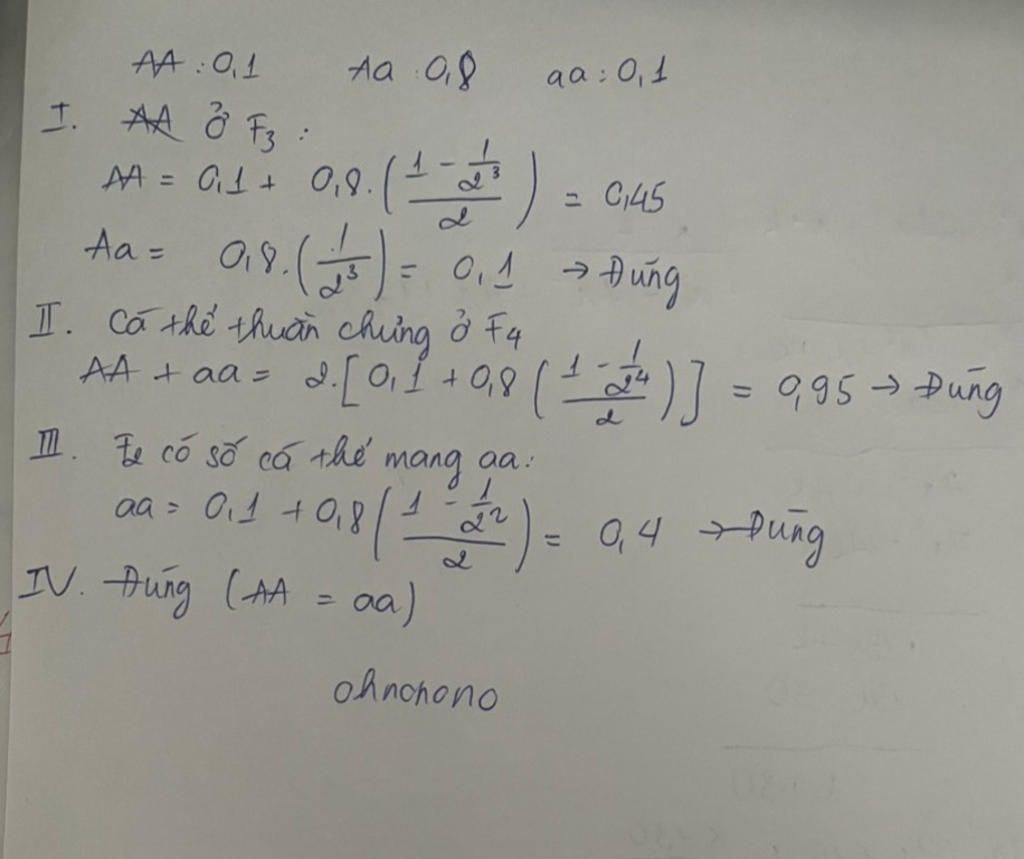 AA : 0,1 Aa : 0,8 aa : 0,1
I. AA ở F₃ :
AA = 0,1 + 0,8.((1 - 1/2³)/2) = 0,45
Aa = 0,8.(1/2³) = 0,1 → Đúng
II. Cá thể thuần chủng ở F₄
AA + aa = 2.[0,1 + 0,8((1 - 1/2⁴)/2)] = 0,95 → Đúng
III. F₂ có số cá thể mang aa:
aa = 0,1 + 0,8((1 - 1/2²)/2) = 0,4 → Đúng
IV. Đúng (AA = aa)
ohnonono